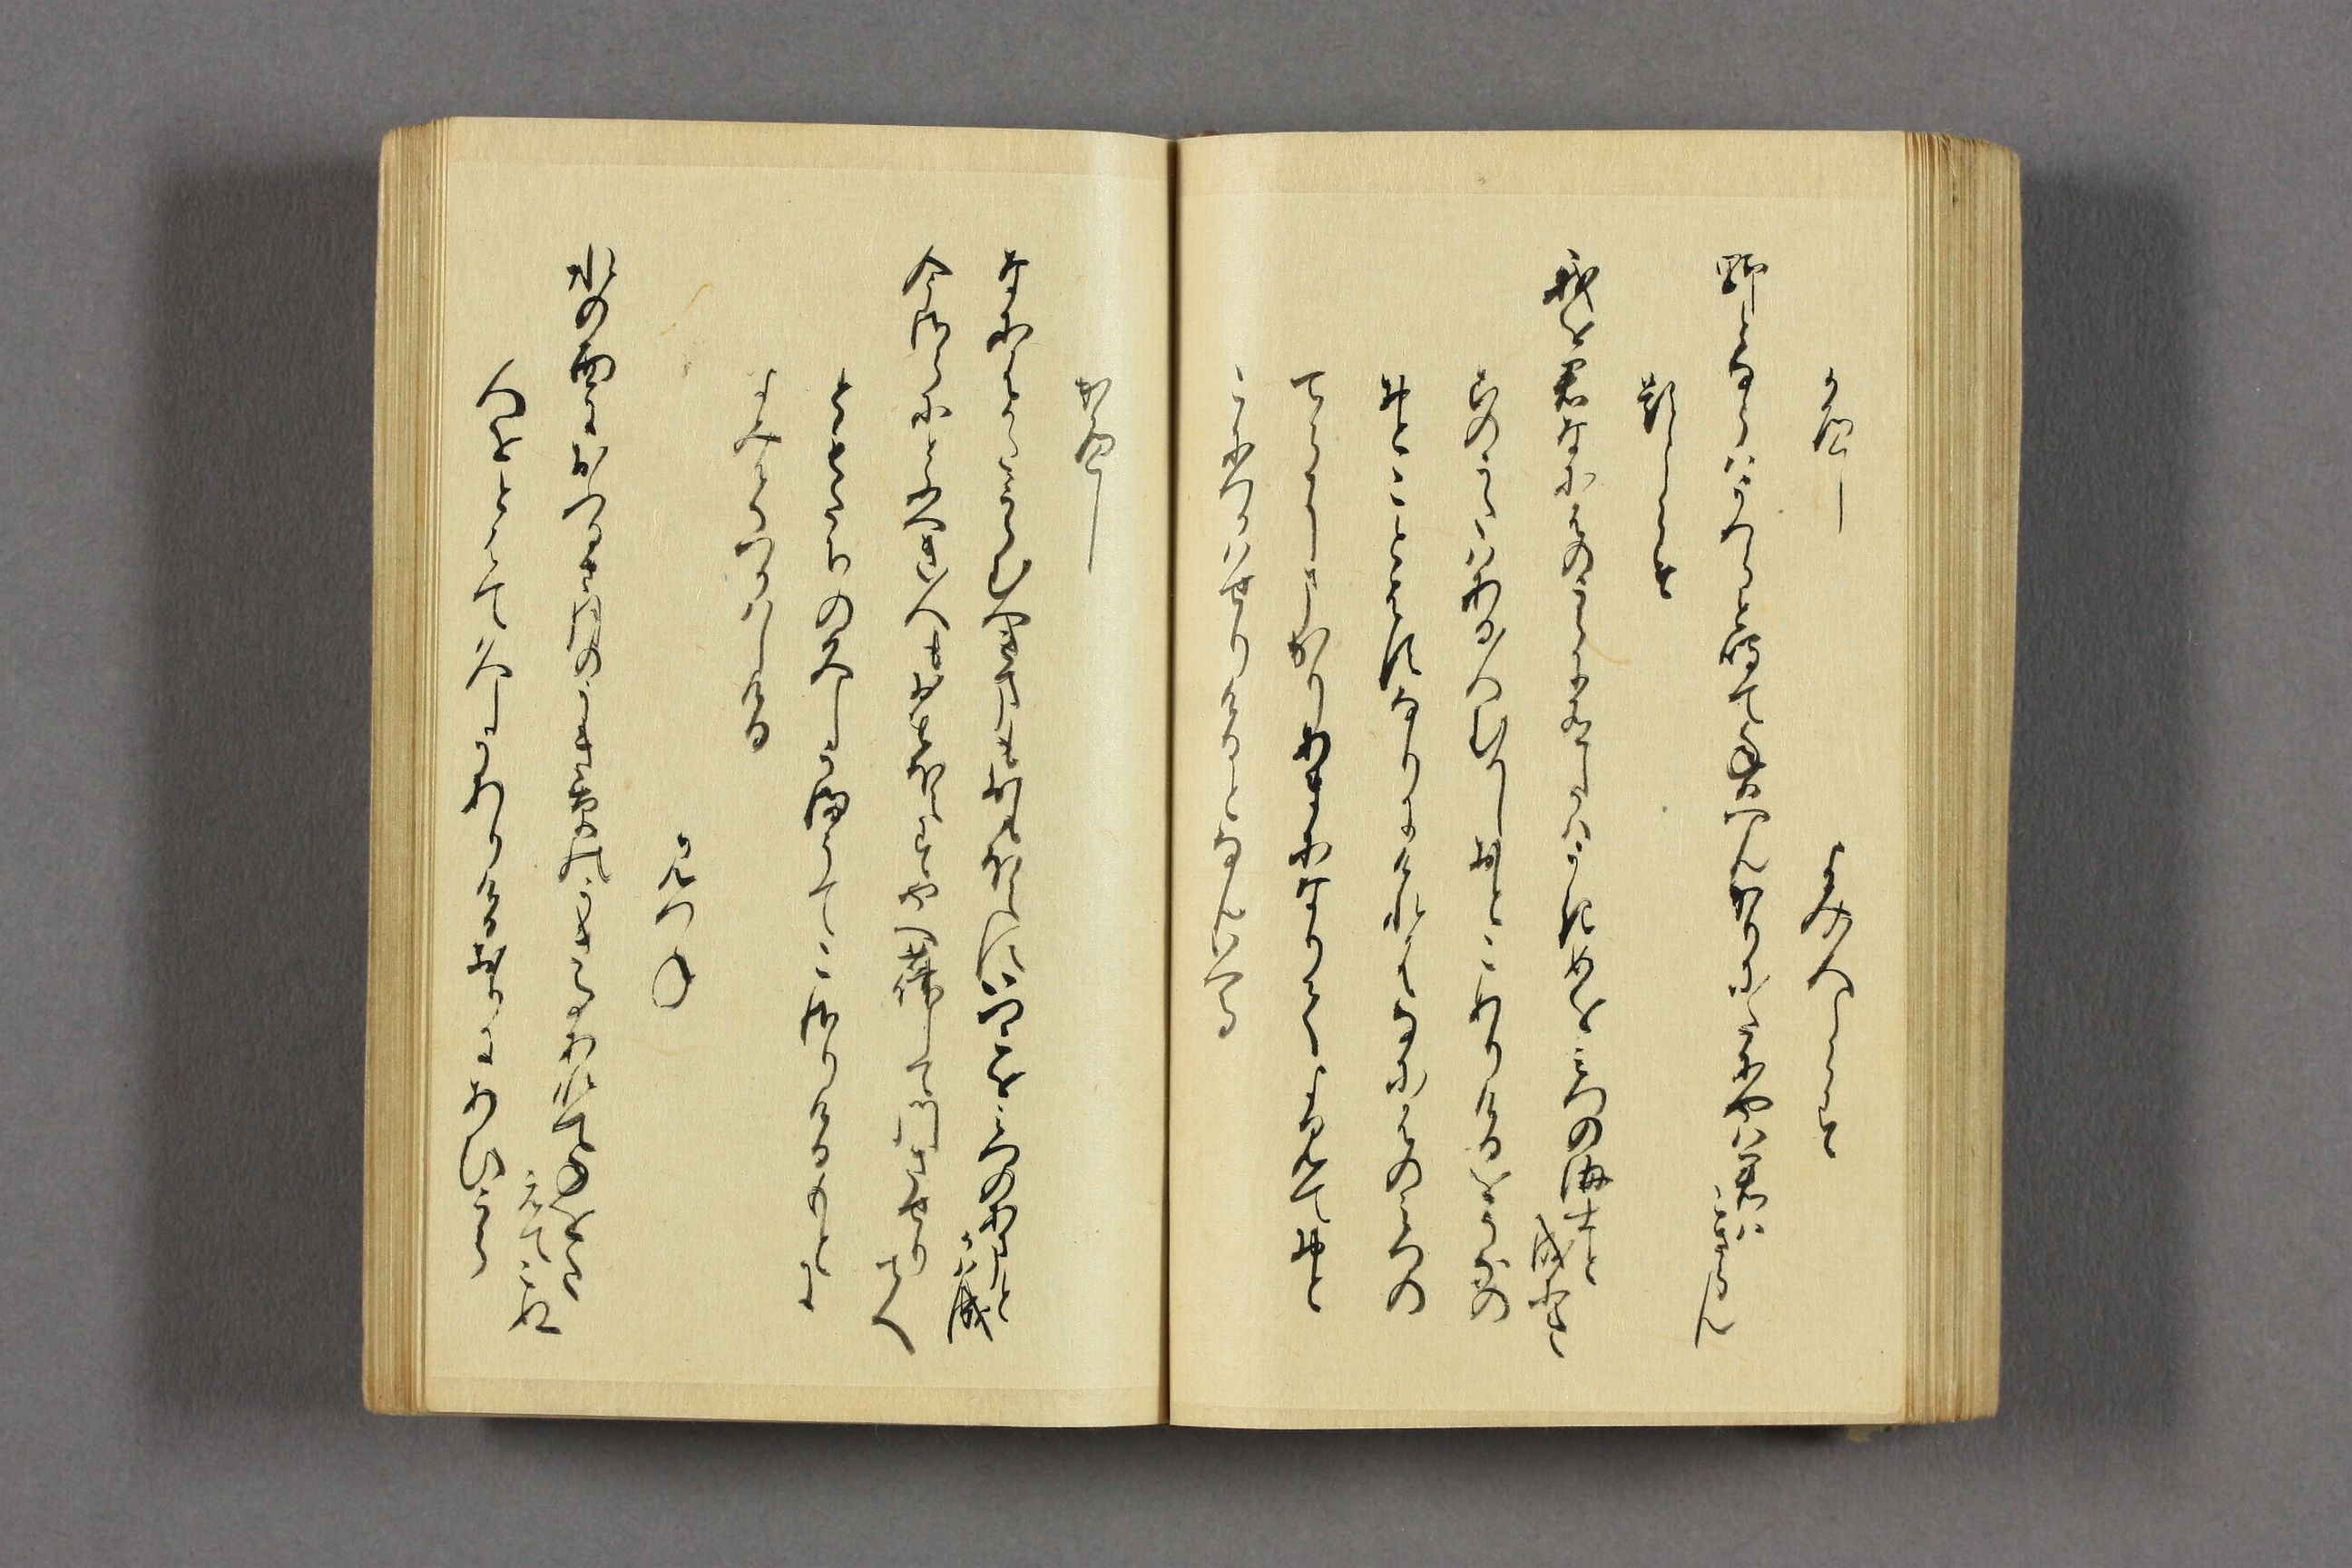 かへし　よみ人しらす
野とならはうつらと鳴て年はへんかりにたにやは君は
こさらん
題しらす
我を君なにはのうらに有しかはうきめをみつの海士と
成にき
このうたはある人むかしおとこありけるをうなの
おとことはすなりにけれはなにはのみつの
てらにまかりてあまになりてよみておと
こにつかはせりけるとなんいへる
かへし
なにはかたうらむへきまもおもほえすいつこをみつのあまと
かは成
今さらにとふへき人もおもほえすやへ葎してかとさせり
てへ
ともたちの久しう　てこさりけるもとに
よみてつかはしける
みつね
水の面におふるさ月のうき草のうき事あれやねをた
えてこぬ
人をとはて久しうありけるおりにあひうら